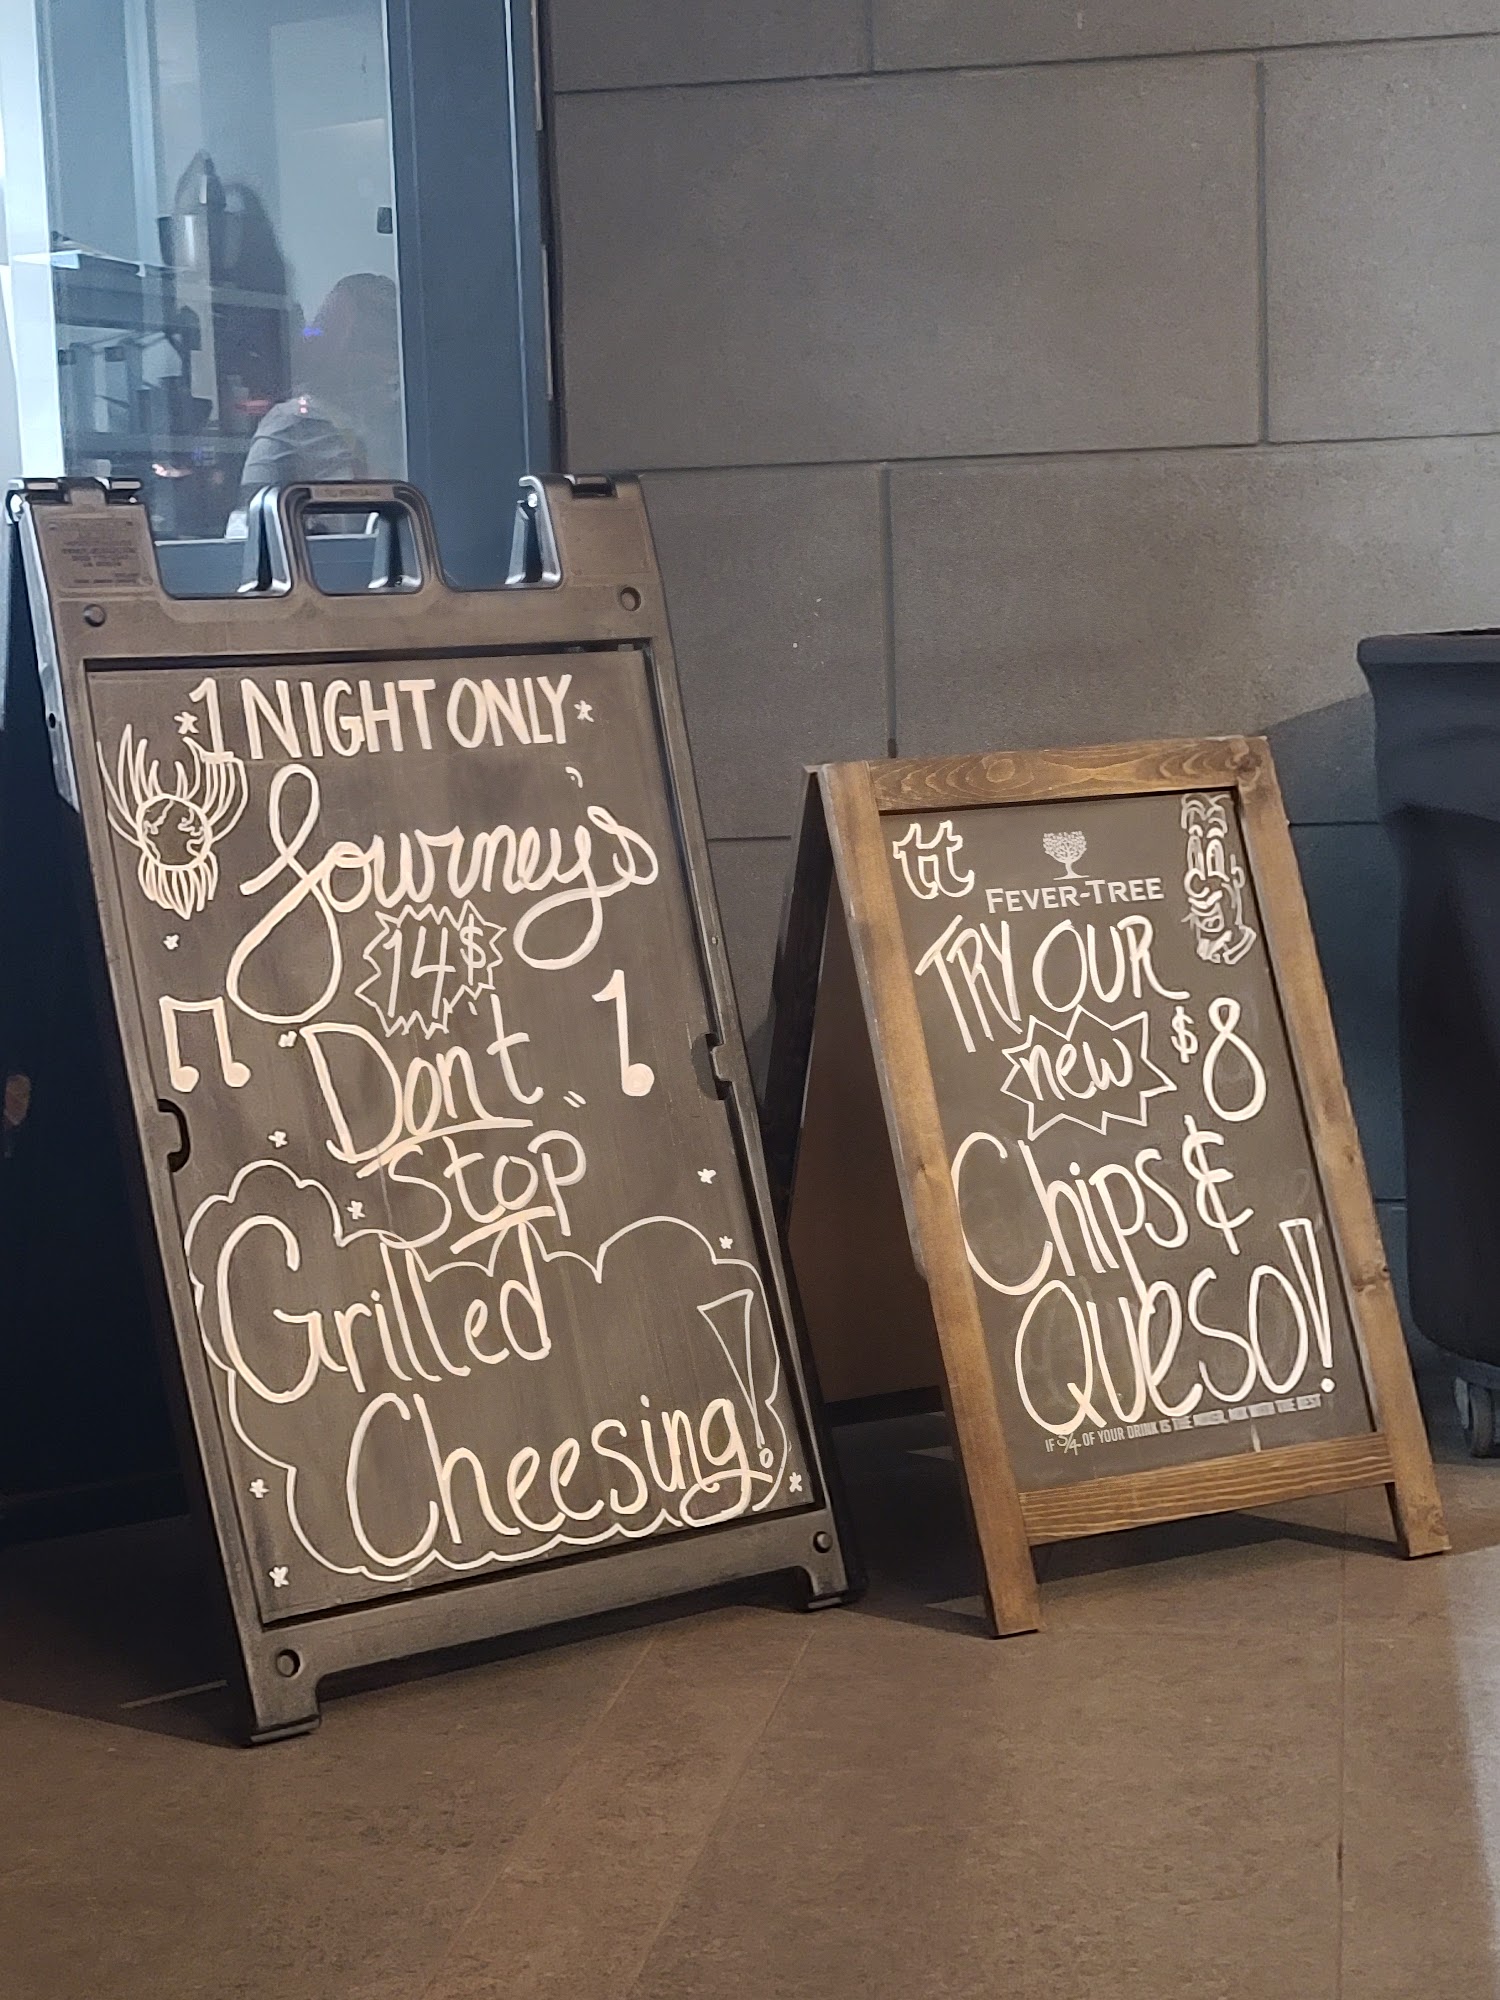 1 NIGHT ONLY
Journey's
14$
"Don't
Stop"
Grilled
Cheesing!
tt
FEVER-TREE
TRY OUR
new $8
Chips &
QUESO!
IF 3/4 OF YOUR DRINK IS THE MIXER, MIX WITH THE BEST